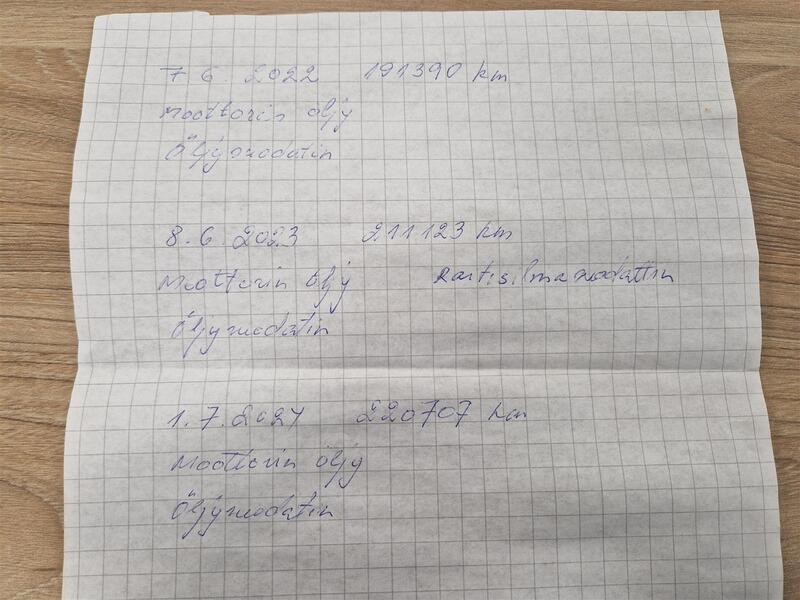 7 6. 2022 191390 km
Moottorin öljy
Öljysuodatin
8. 6. 2023 211123 km
Moottorin öljy Raitisilmasuodattin
Öljysuodatin
1. 7. 2024 220707 km
Moottorin öljy
Öljysuodatin